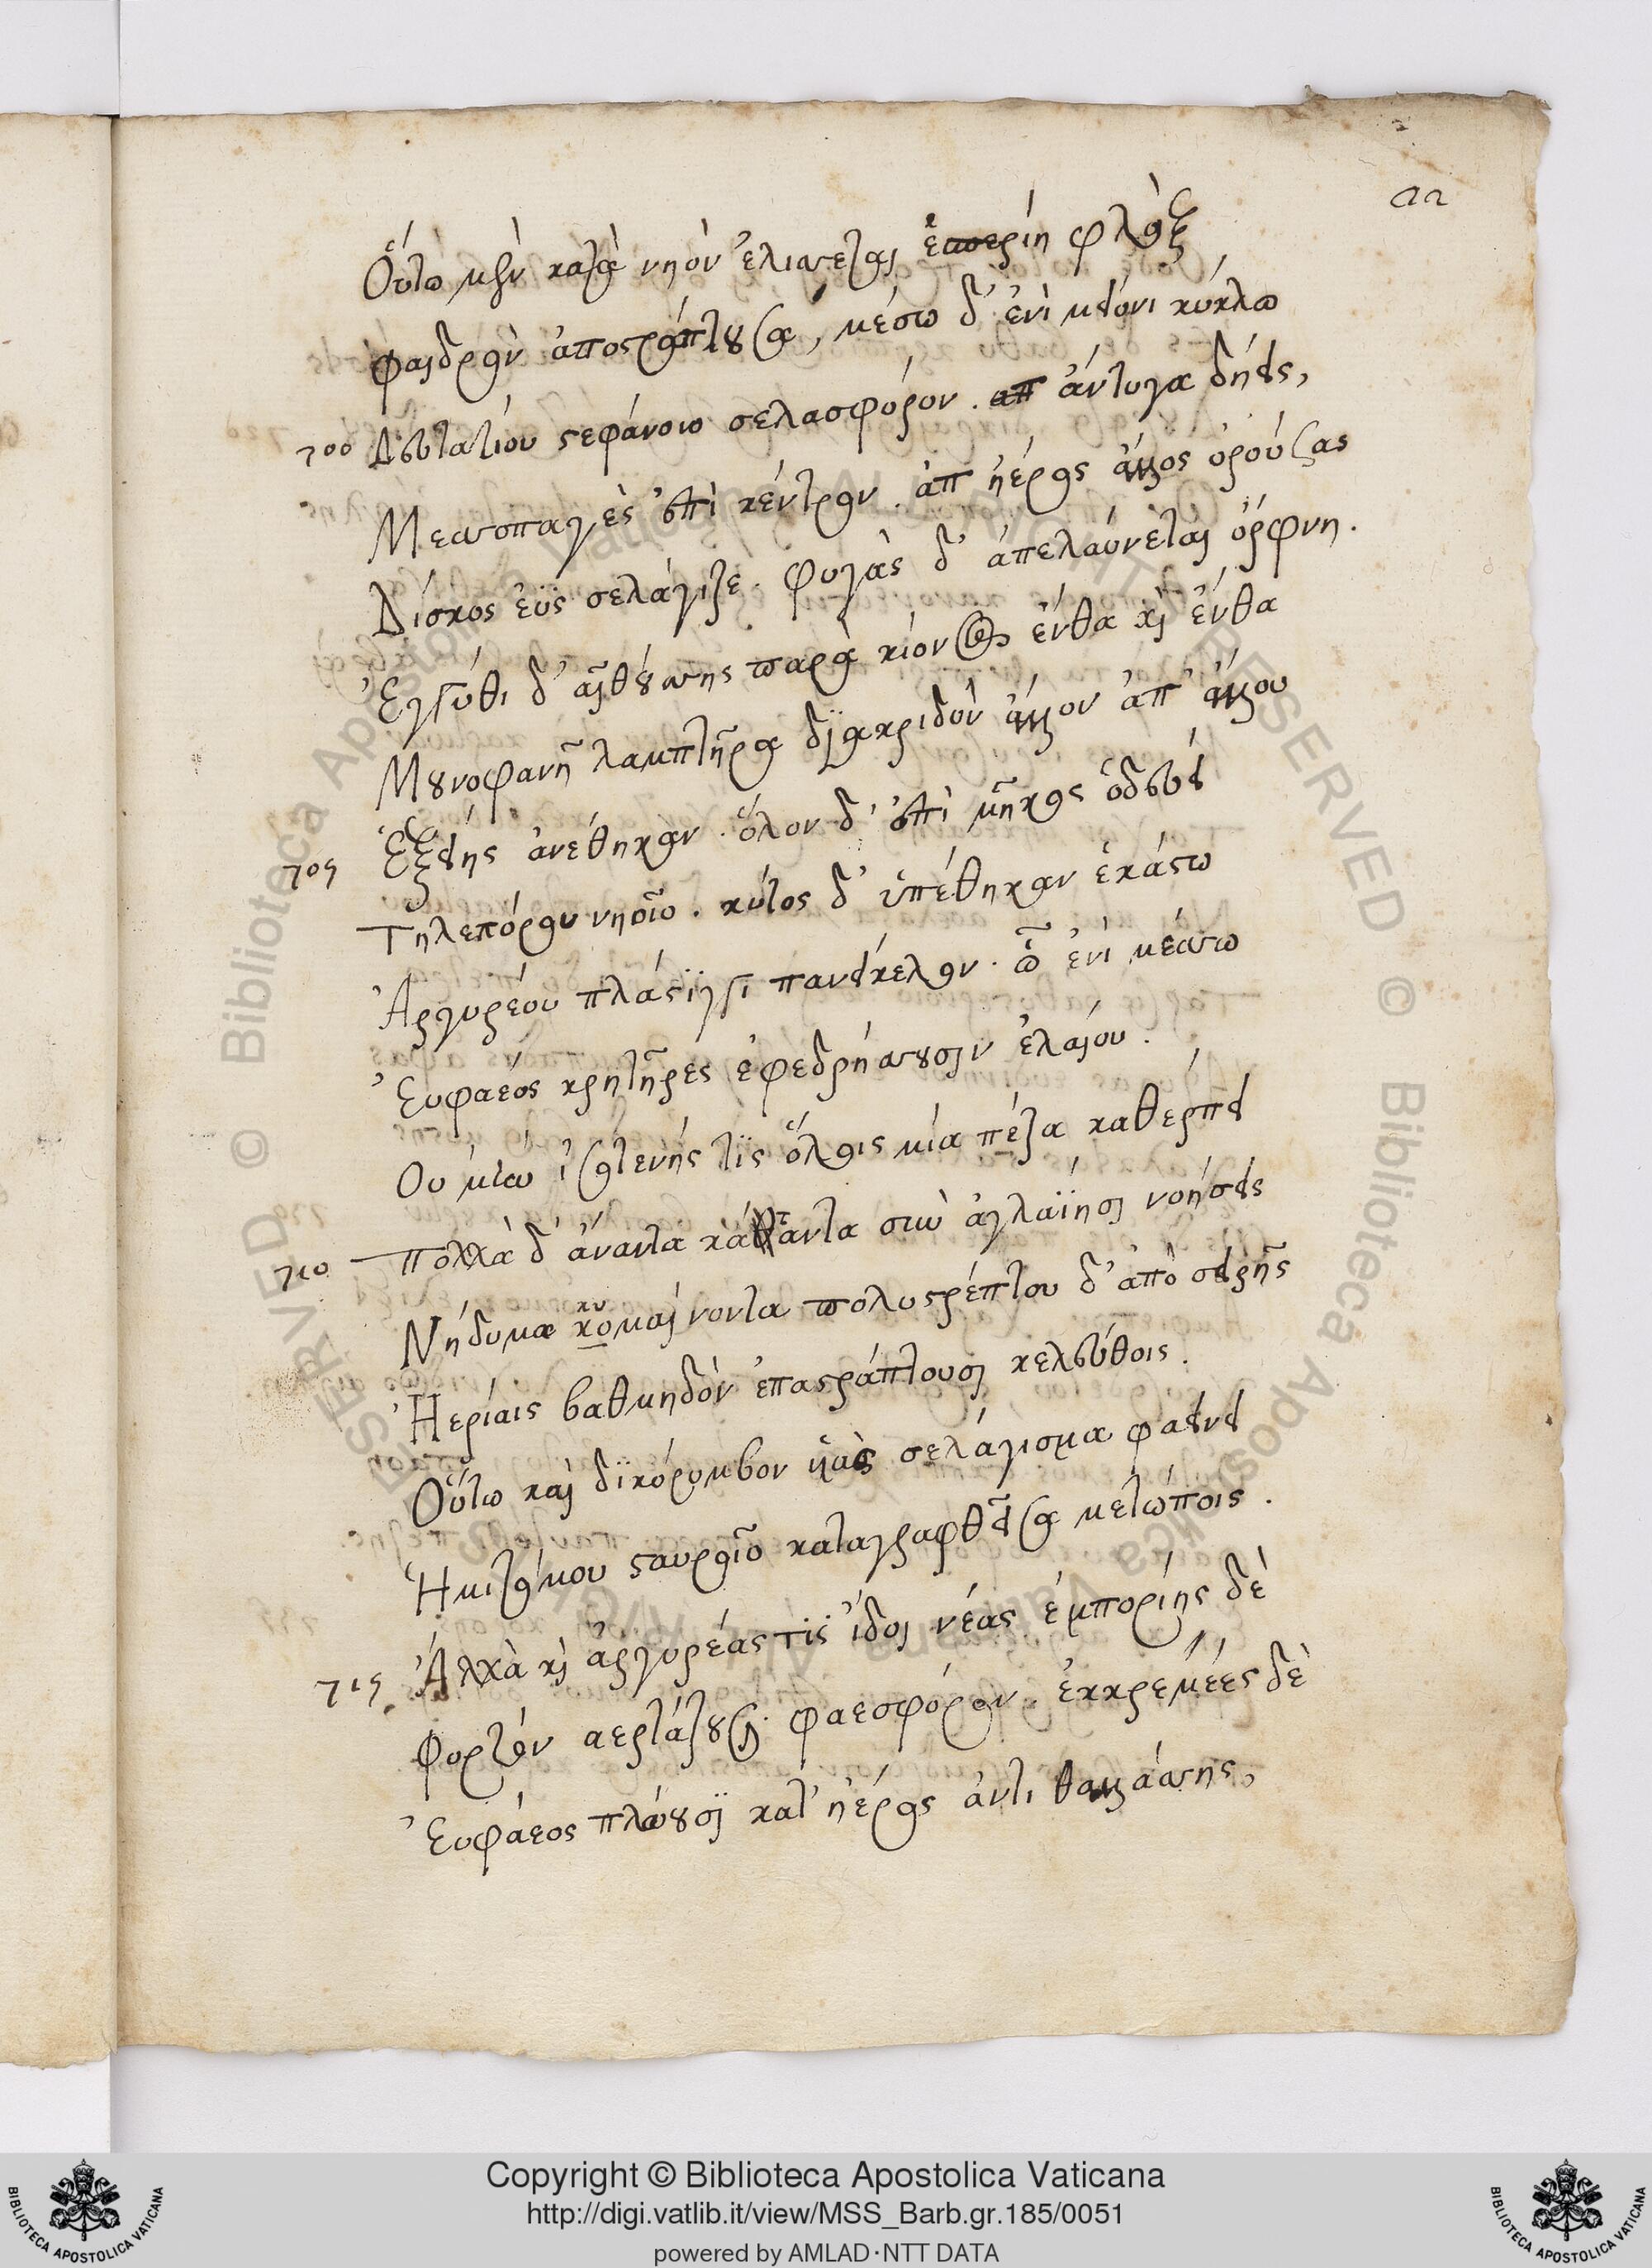 22
Οὕτω μὲν κατὰ νηὸν ἑλίσσεται ἑσπερίη φλὸξ
φαιδρὸν ἀποστράπτουσα, μέσω δ' ἐνὶ μείονι κύκλω
700 Δευτατίου στεφάνοιο σελασφόρον. ἀπ ἄντυγα δήεις,
Μεσσοπαγὲς ἐπὶ κέντρον. ἀπ ἠέρος ἄλλος ὀρούσας
Δίσκος ἐῢς σελάγιζε. φυγὰς δ' ἀπελαύνεται ὄρφνη.
Ἐγγύθι δ' αἰθούσης παρὰ κίονας ἔνθα καὶ ἔνθα
Μουνοφανῆ λαμπτῆρα διακριδὸν ἄλλον ἀπ' ἄλλου
705 Ἑξείης ἀνέθηκαν. ὅλον δ' ἐπὶ μῆκος ὁδεύει
Τηλεπόρου νηοῖο. κύτος δ' ὑπέθηκαν ἑκάστω
Ἀργυρέου πλάστιγγι πανείκελον. ὧ ἐνὶ μέσσω
Ἐυφαέος κρητῆρες ἐφεδρήσσουσιν ἐλαίου.
Ου μὴν ἰσοτενής τις ὅλοις μία πέζα καθέρπει
710 πολλὰ δ' ἄναντα κάταντα σὺν ἀγλαΐησι νοήσεις
Νήδυμα κομαίνοντα πολυστρέπτου δ' ἀπὸ σειρῆς
κυ
Ἠερίαις βαθμηδὸν ἐπαστράπτουσι κελεύθοις.
Οὕτω καὶ δικόρυμβον ὑὰς σελάγισμα φαείνει
Ἡμιτόμου σταυροῖο καταγραφθεῖσα μετώποις.
715 Ἀλλὰ καὶ ἀργυρέας τις ἴδοι νέας ἐμπορίης δὲ
φορτὸν αερτάζουσι φαεσφόρον. ἐκκρεμέες δὲ
Ἐυφάεος πλώουσι κατ' ἠέρος ἀντι θαλάσσης,
Copyright © Biblioteca Apostolica Vaticana
http://digi.vatlib.it/view/MSS_Barb.gr.185/0051
powered by AMLAD·NTT DATA
BIBLIOTECA APOSTOLICA VATICANA
BIBLIOTECA APOSTOLICA VATICANA